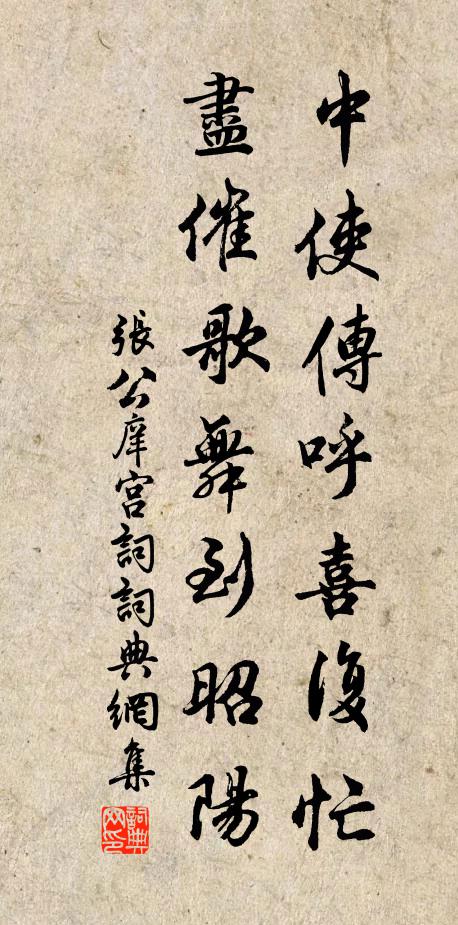 中使傳呼喜復忙
盡催歌舞到昭陽
張公庠宮詞詞典網集
詞典
网印